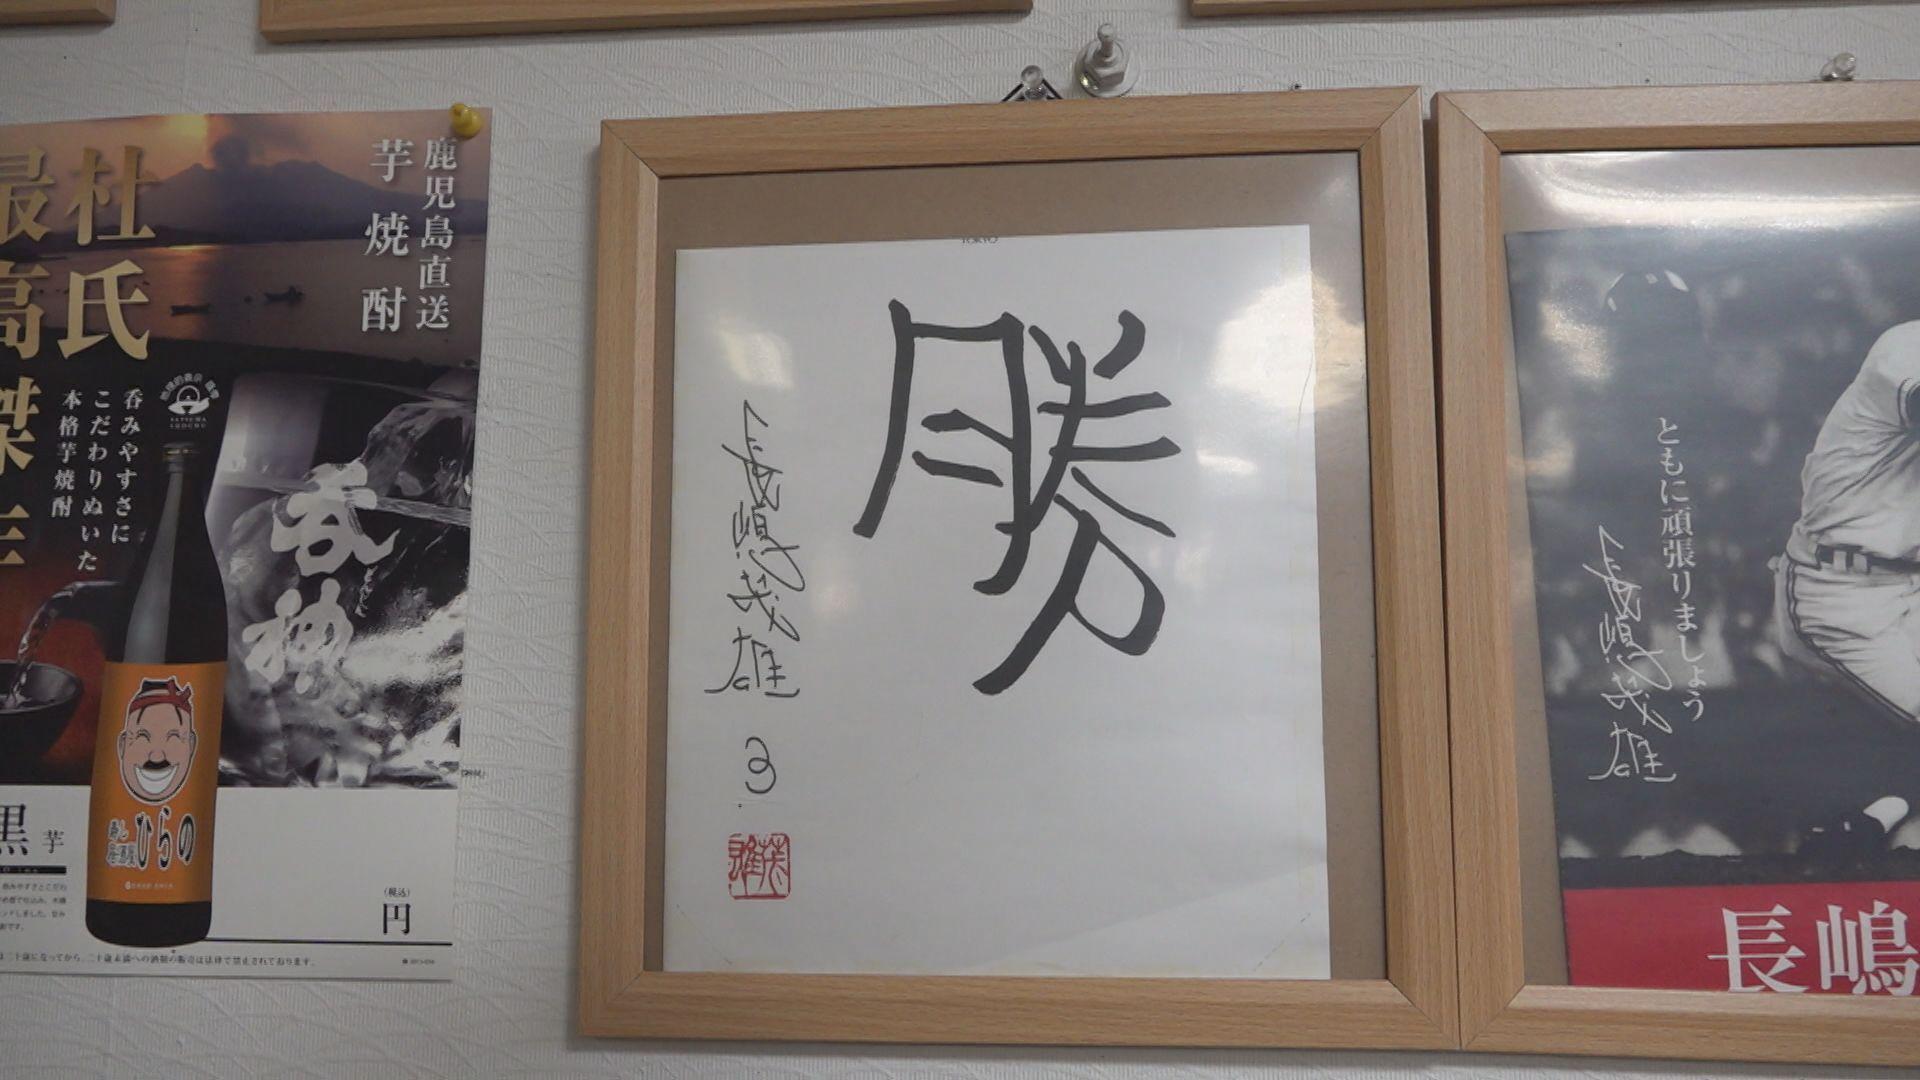 鹿児島直送
芋焼酎
杜氏
最高傑
呑みやすさに
こだわりぬいた
本格芋焼酎
SATSUMA
SHOCHU
呑神
どんしん
ひらの
黒
芋
(税込)
円
勝
長嶋茂雄
3
茂雄
ともに頑張りましょう
長嶋茂雄
長嶋